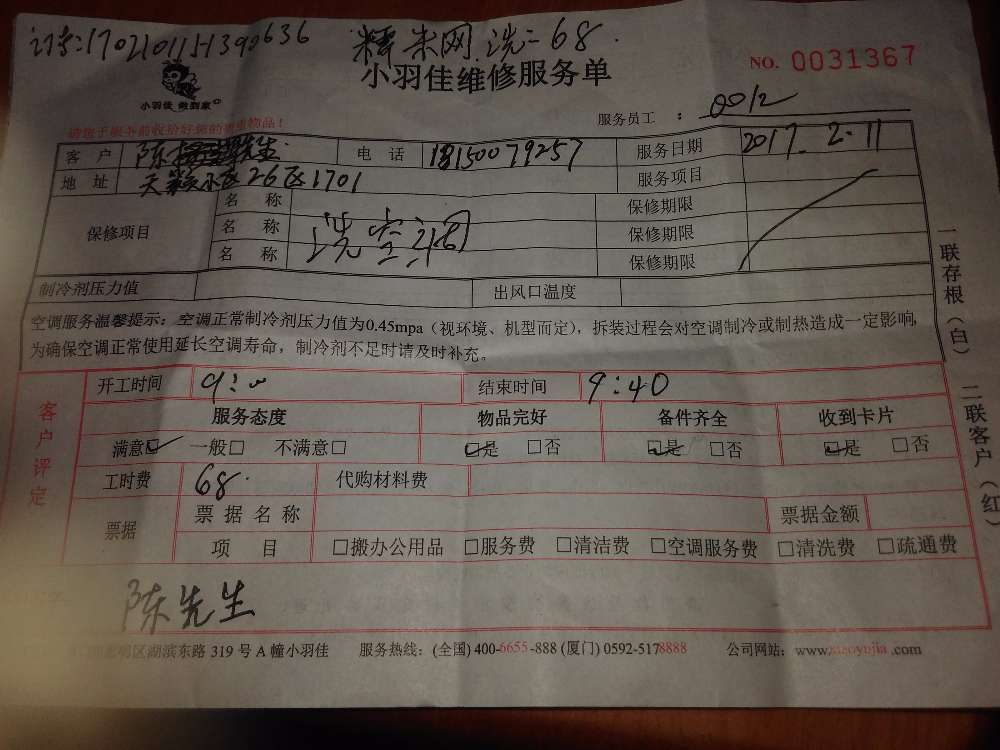 订号:1702101151390636 糯米网 洗二68.
小羽佳 做到家
小羽佳维修服务单
NO. 0031367
请您于服务前收拾好您的贵重物品!
服务员工 : 0012
客户 陈 先生 电话 18150079257 服务日期 2017.2.11
地址 天 小区26区1701 服务项目
保修项目 名称 洗空调 保修期限
名称 保修期限
名称 保修期限
制冷剂压力值 出风口温度
空调服务温馨提示:空调正常制冷剂压力值为0.45mpa(视环境、机型而定),拆装过程会对空调制冷或制热造成一定影响,
为确保空调正常使用延长空调寿命,制冷剂不足时请及时补充。
客户评定
开工时间 9: 结束时间 9:40
服务态度 物品完好 备件齐全 收到卡片
满意☑ 一般□ 不满意□ ☑是 □否 ☑是 □否 ☑是 □否
工时费 68. 代购材料费
票据 票据名称 票据金额
项目 □搬办公用品 □服务费 □清洁费 □空调服务费 □清洗费 □疏通费
陈先生
明区湖滨东路 319 号 A 幢小羽佳 服务热线:(全国) 400-6655-888 (厦门) 0592-5178888 公司网站:www.xiaoyujia.com
一联存根(白) 二联客户(红)